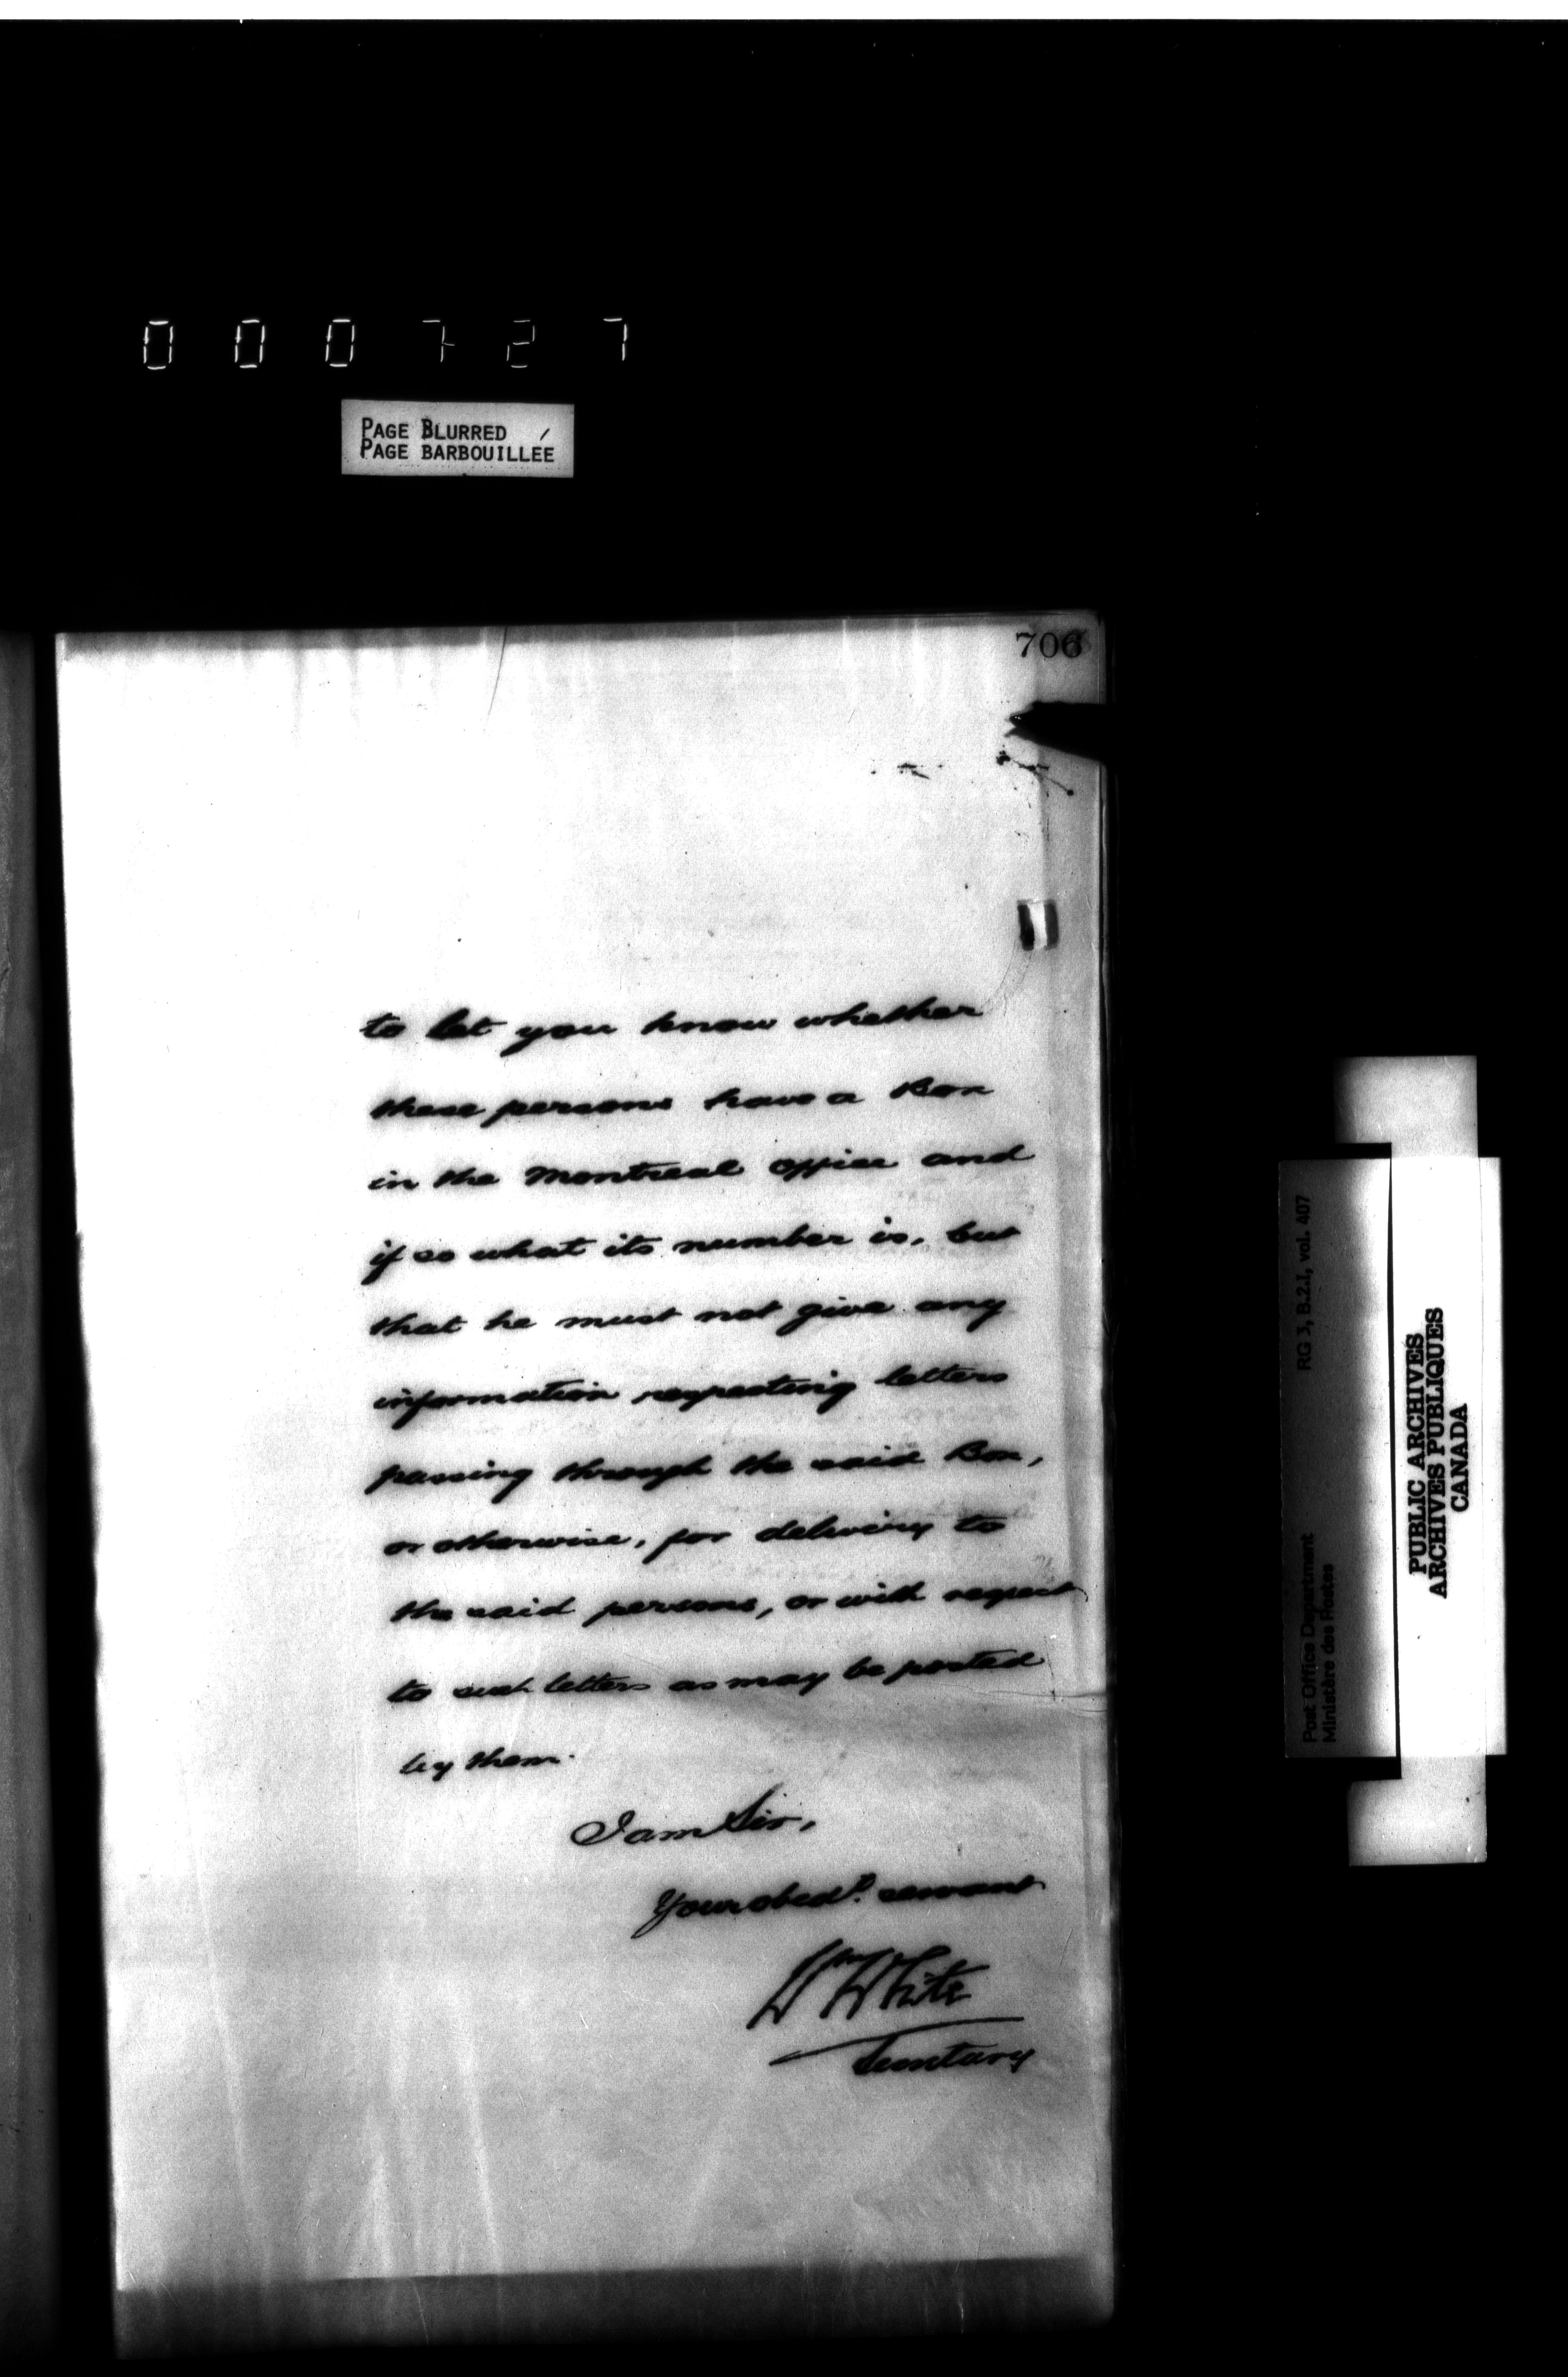 000727
PAGE BLURRED
PAGE BARBOUILLÉE
706
to let you know whether
these persons have a Box
in the Montreal office and
if so what its number is, but
that he must not give any
information respecting letters
passing through the said Box,
or otherwise, for delivery to
the said persons, or with respect
to such letters as may be posted
by them.
I am Sir,
Your obedt. servant
Wm White
Secretary
Post Office Department RG 3, B.2.1, vol. 407
Ministère des Postes
PUBLIC ARCHIVES
ARCHIVES PUBLIQUES
CANADA